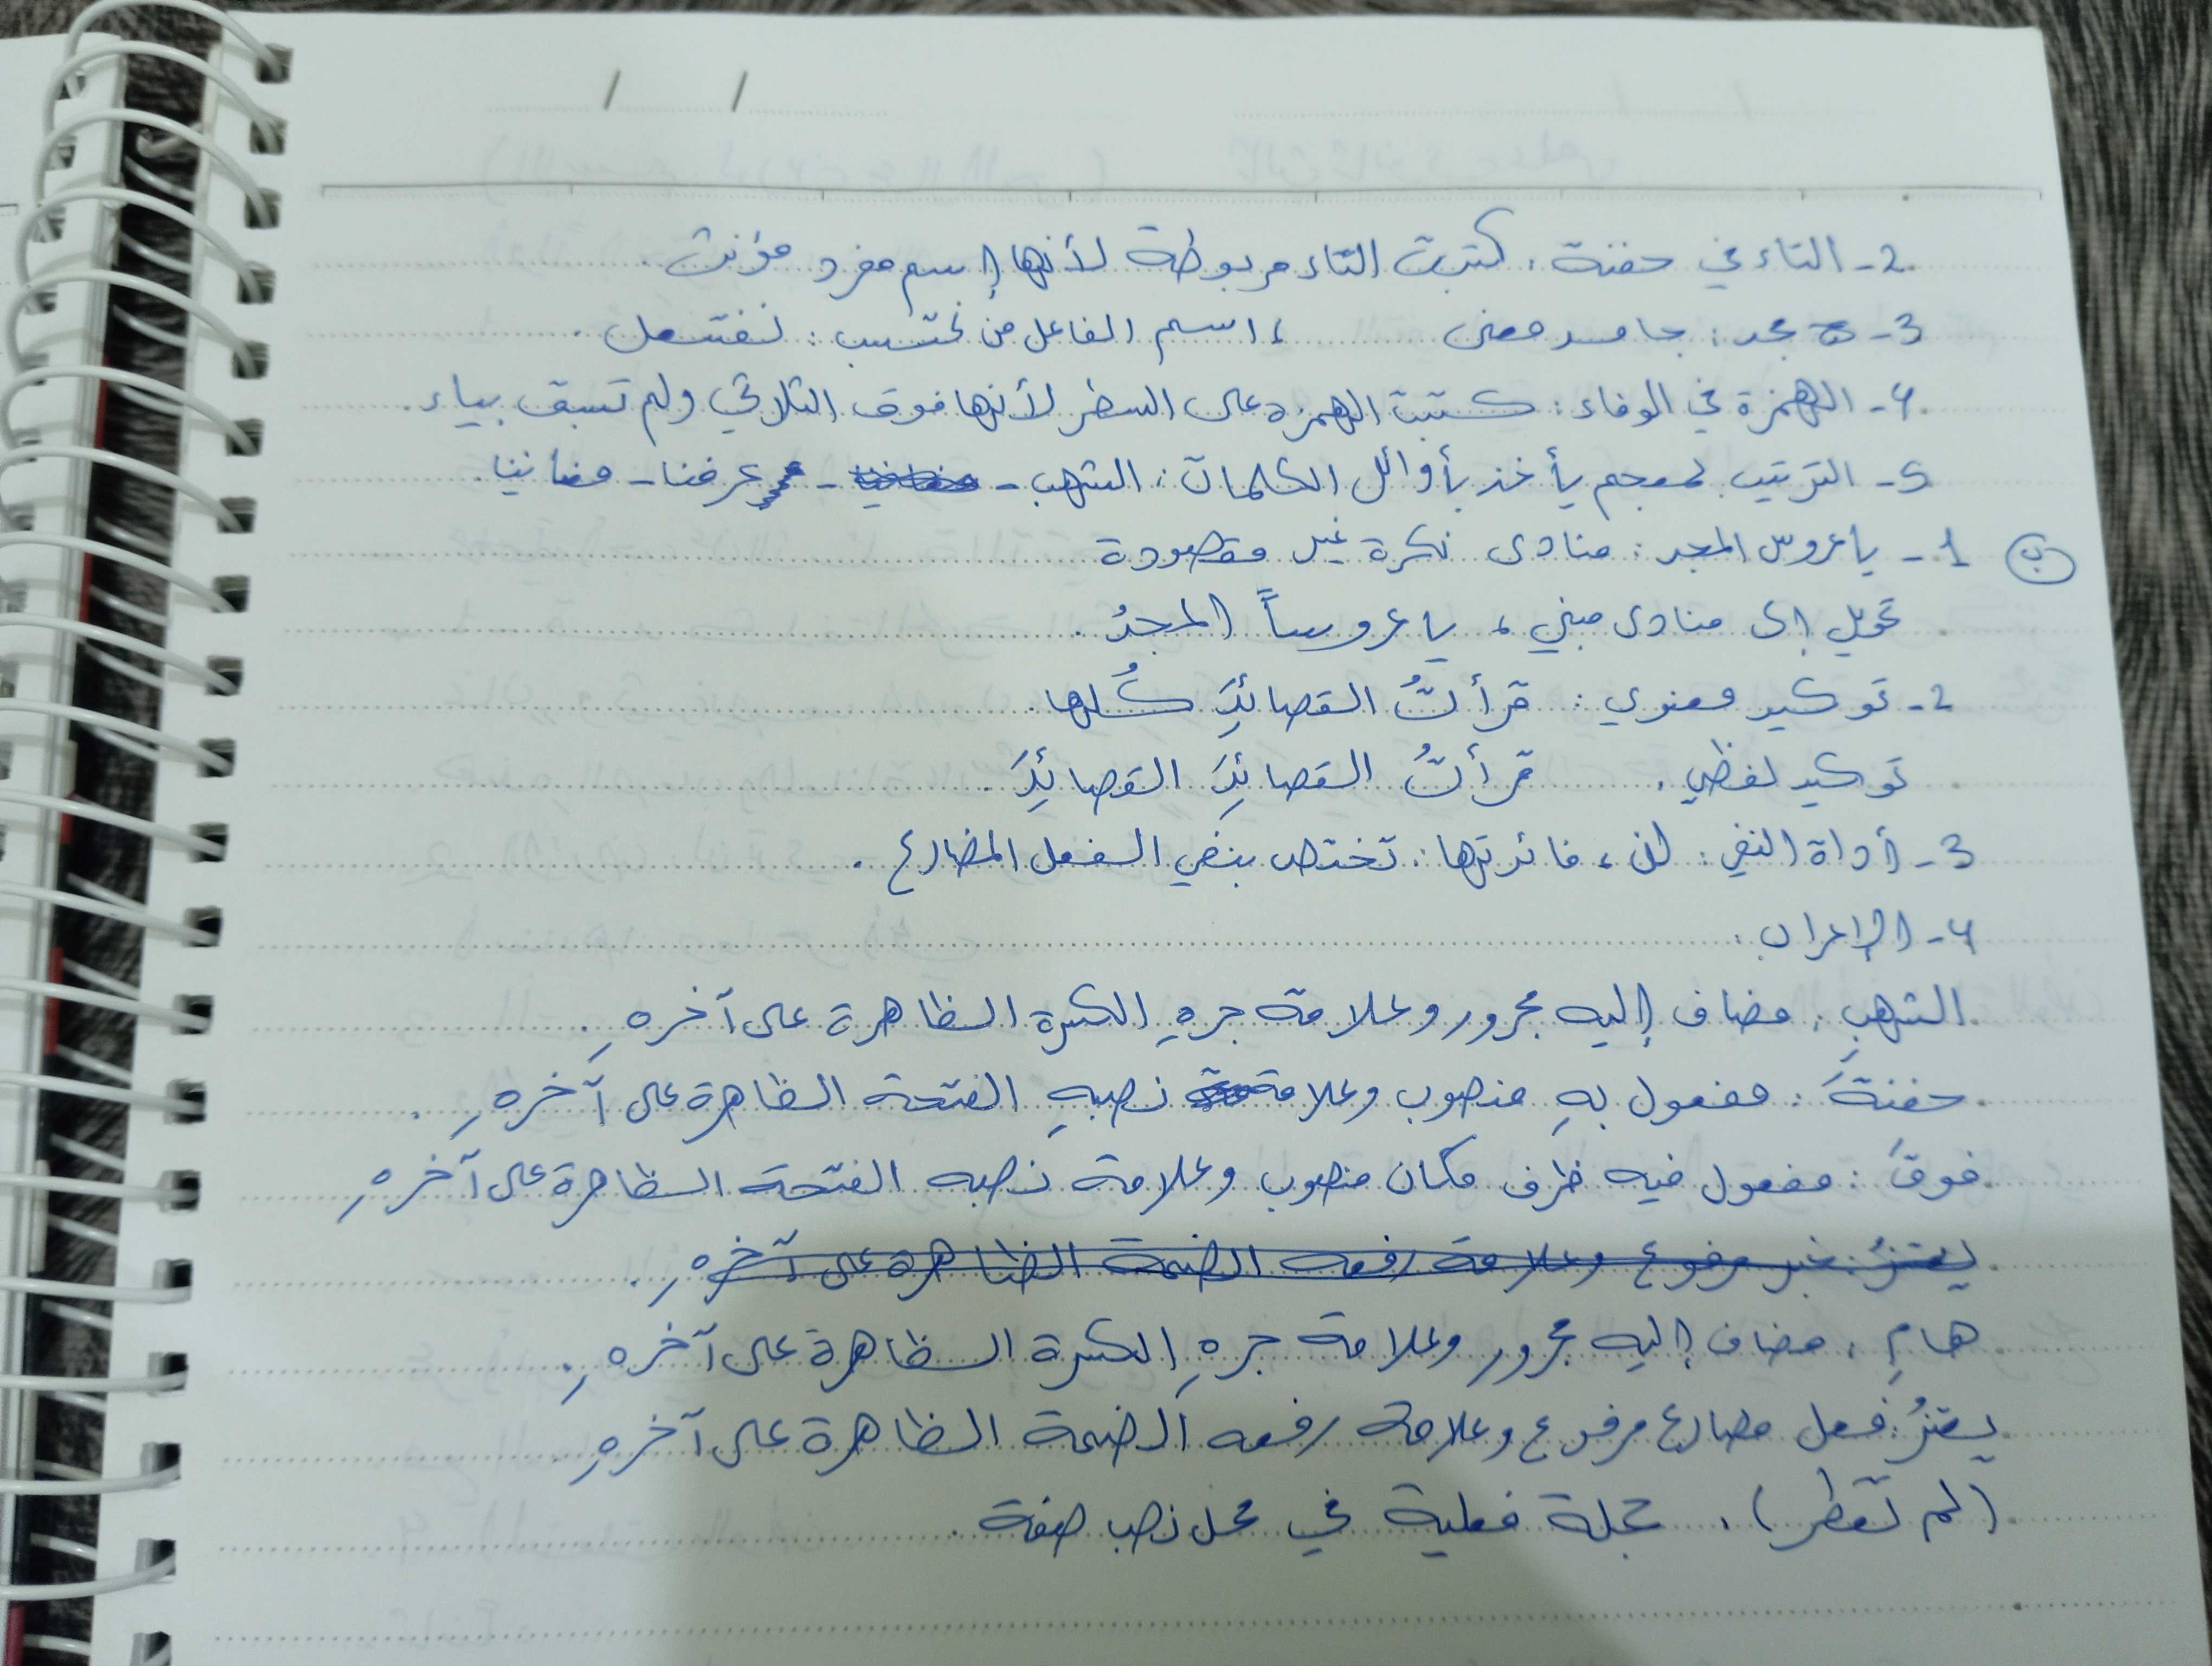 / /
2- التاء في حفنة: كتبت التاء مربوطة لأنها إسم مفرد مؤنث.
3- مجد: جامد معنى ، اسم الفاعل من نحتسب: نفتعل.
4- الهمزة في الوفاء: كتبت الهمزة على السطر لأنها فوق الثلاثي ولم تسبق بياء.
5- الترتيب لمعجم يأخذ بأوائل الكلمات: الشهب - - عرفنا - مغانينا.
ب 1- يا عروس المجد: منادى نكرة غير مقصودة
تحويل إلى منادى مبني، يا عروساً المجدُ.
2- توكيد معنوي: قرأتُ القصائدَ كُلها.
توكيد لفظي: قرأتُ القصائدَ القصائدَ.
3- أداة النفي: لن، فائدتها: تختص بنفي الفعل المضارع.
4- الإعراب:
الشهبِ: مضاف إليه مجرور وعلامة جرهِ الكسرة الظاهرة على آخرهِ.
حفنةَ: مفعول بهِ منصوب وعلامة نصبهِ الفتحة الظاهرة على آخرهِ.
فوقَ: مفعول فيه ظرف مكان منصوب وعلامة نصبه الفتحة الظاهرة على آخرهِ
خبر مرفوع وعلامة رفعه الضمة الظاهرة على آخرهِ.
هامِ: مضاف إليه مجرور وعلامة جرهِ الكسرة الظاهرة على آخرهِ.
فعل مضارع مرفوع وعلامة رفعه الضمة الظاهرة على آخرهِ
(لم تقطر): جملة فعلية في محل نصب صفة.